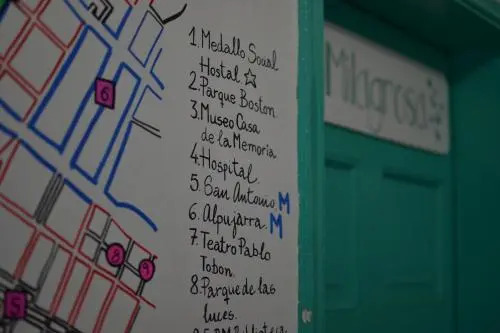 1. Medallo Social
Hostal ☆
2. Parque Boston.
3. Museo Casa
de la Memoria
4. Hospital.
5. San Antonio M
6. Alpujarra. M
7. Teatro Pablo
Tobon.
8. Parque de las
luces.
Milagrosa
6
8
9
5